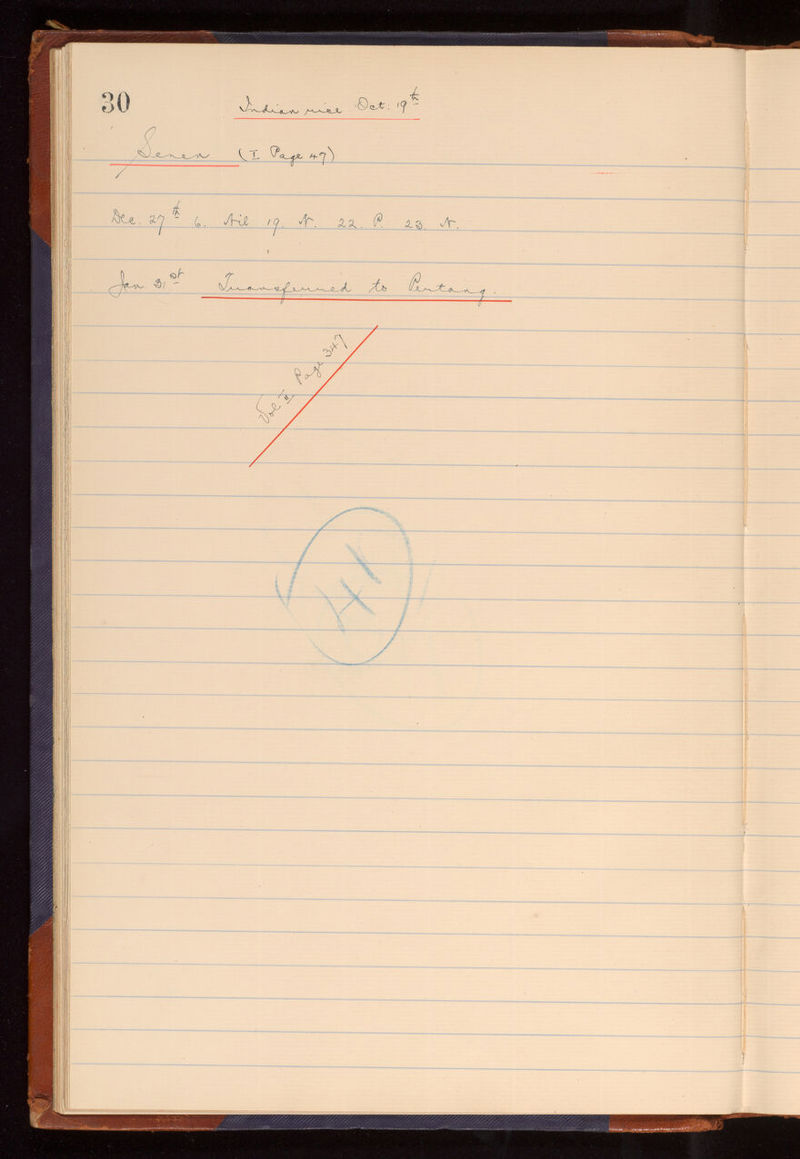 30
Indian rice Oct. 19th
Senen (I Page 47)
Dec. 27th 6. Nil 19. N. 22. P. 23. N.
Jan 31st Transferred to Pertang.
Vol II Page 347
41